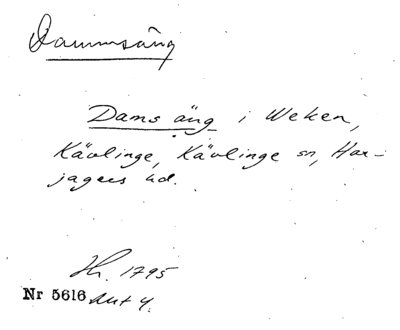 Dammsäng
Dams äng i Weken,
Kävlinge, Kävlinge sn, Har-
jagers hd.
1795
Nr 5616